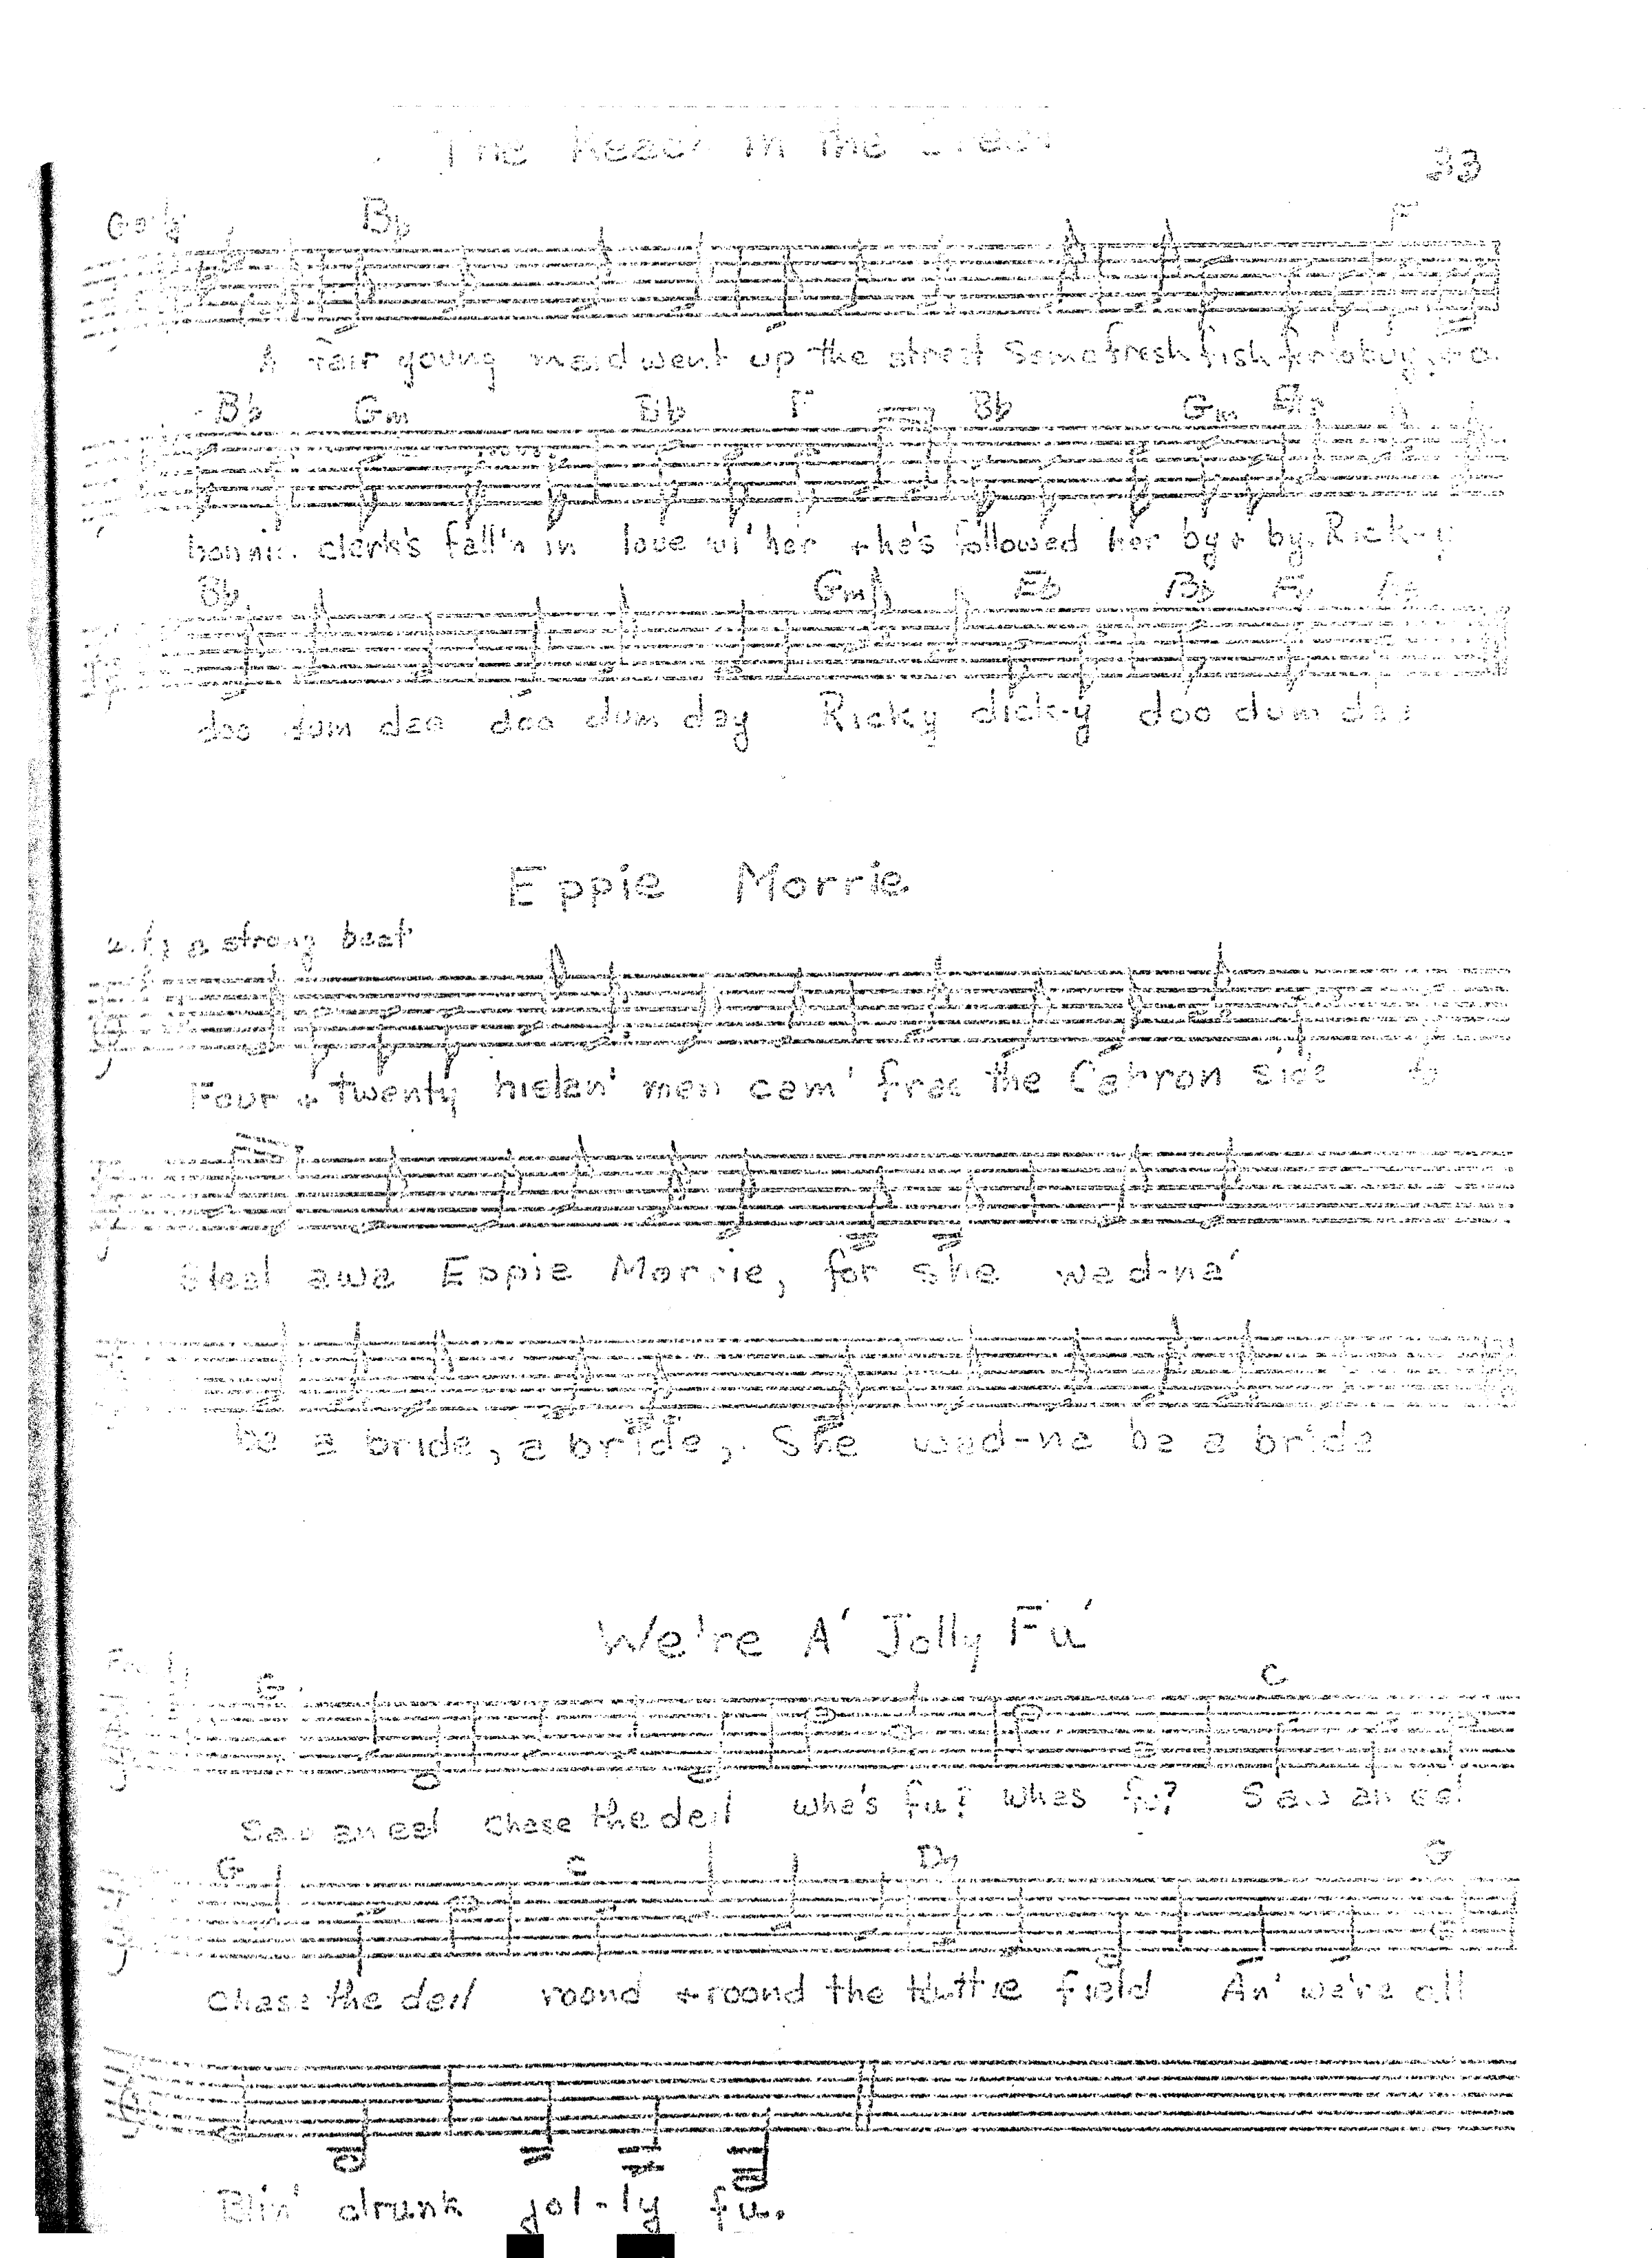 The Keach in the Creel
33
Bb F
A fair young maid went up the street Some fresh fish for to buy, + a
Bb Gm Bb F Bb Gm
bonnie clerk's fall'n in love wi' her + he's followed her by + by, Rick-y
Bb Gm Eb Bb
doo dum dae doo dum day Ricky dick-y doo dum dae
Eppie Morrie
with a strong beat
Four + twenty hielan' men cam' frae the Carron side to
Steal awa Eppie Morrie, for she wad-na'
be a bride, a bride, She wad-na be a bride
We're A' Jolly Fu'
G C
Saw an eel chase the deil wha's fu? whas fu? Saw an eel
G C D7 G
chase the deil roond + roond the tattie field An' we're all
Blin' drunk jol-ly fu.